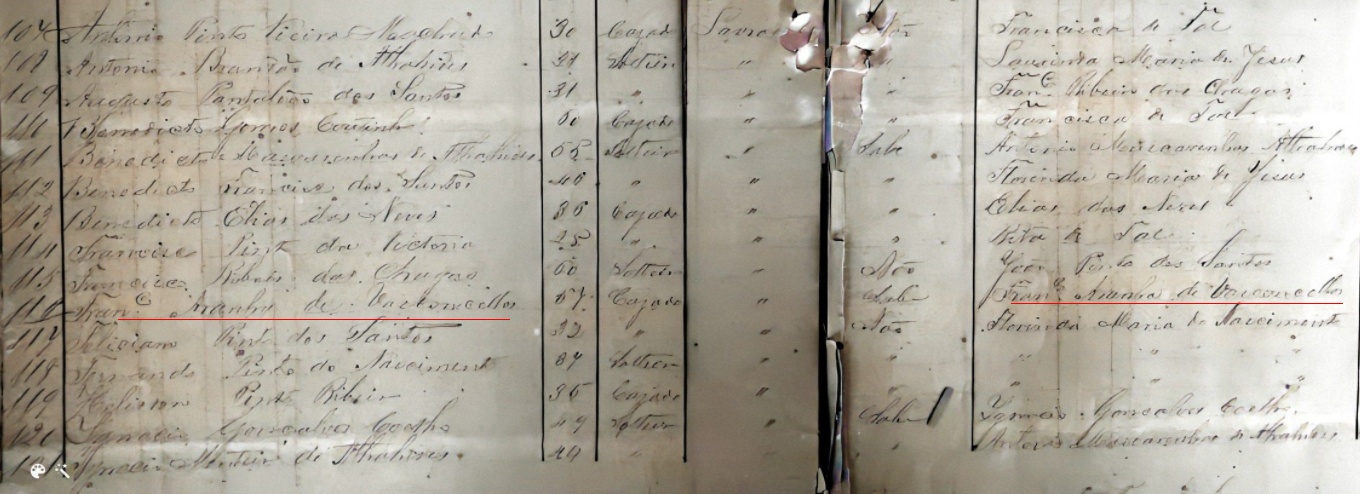 107 Antonio Pinto Vieira Machado 30 Cazado Lavrador Não Francisca de Tal
108 Antonio Brandão de Athahides 37 Solteiro " " Laurinda Maria de Jesus
109 Augusto Pantalião dos Santos 31 " " " Fran.co Ribeiro das Chagas
110 Benedicto Gomes Coutinho 60 Cazado " " Francisca de Tal
111 Benedicto Mascarenhas de Athahides 58 Solteiro " Sabe Antonio Mascarenhas Athahides
112 Benedicto Francisco dos Santos 40 " " " Florinda Maria de Jesus
113 Benedicto Elias das Neves 36 Cazado " " Elias das Neves
114 Francisco Pinto da Victoria 25 " " " Rita de Tal
115 Francisco Ribeiro das Chagas 60 Solteiro " Não João Pinto dos Santos
116 Fran.co Aranha de Vasconcellos 57 Cazado " Sabe Fran.co Aranha de Vasconcellos
117 Feliciano Pinto dos Santos 32 " " Não Florinda Maria do Nascimento
118 Fernando Pinto do Nascimento 34 Solteiro " " " " "
119 Pinto Ribeiro 36 Cazado " "
120 Ignacio Gonsalves Coelho 49 Solteiro " Sabe Ignacio Gonsalves Coelho
Ignacio Monteiro de Athahides 44 " " Antonio Mascarenhas de Athahides